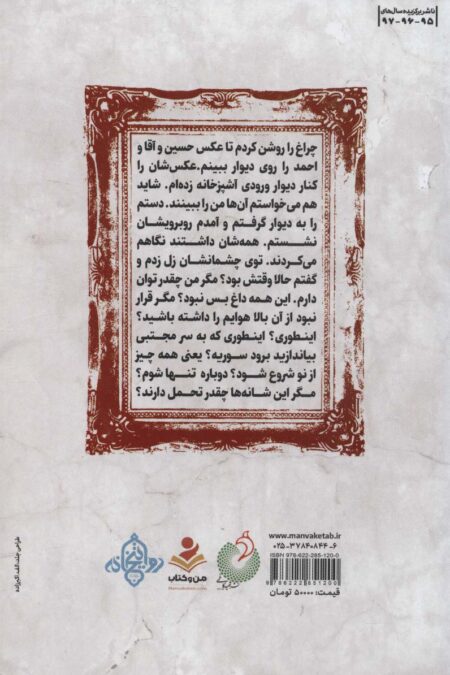 ناشر برگزیده سال‌های
۹۷-۹۶-۹۵
چراغ را روشن کردم تا عکس حسین و آقا و
احمد را روی دیوار ببینم.عکس‌شان را
کنار دیوار ورودی آشپزخانه زده‌ام. شاید
هم می‌خواستم آن‌ها من را ببینند. دستم
را به دیوار گرفتم و آمدم روبرویشان
نشستم. همه‌شان داشتند نگاهم
می‌کردند. توی چشمانشان زل زدم و
گفتم حالا وقتش بود؟ مگر من چقدر توان
دارم. این همه داغ بس نبود؟ مگر قرار
نبود از آن بالا هوایم را داشته باشید؟
اینطوری؟ اینطوری که به سر مجتبی
بیاندازید برود سوریه؟ یعنی همه چیز
از نو شروع شود؟ دوباره تنها شوم؟
مگر این شانه‌ها چقدر تحمل دارند؟
www.manvaketab.ir
۰۲۵-۳۷۸۴۰۸۴۴-۶
ISBN 978-622-285-120-0
9786222851200
قیمت: ۵۰۰۰۰ تومان
من و کتاب
طراحی جلد: الف. اکبرزاده